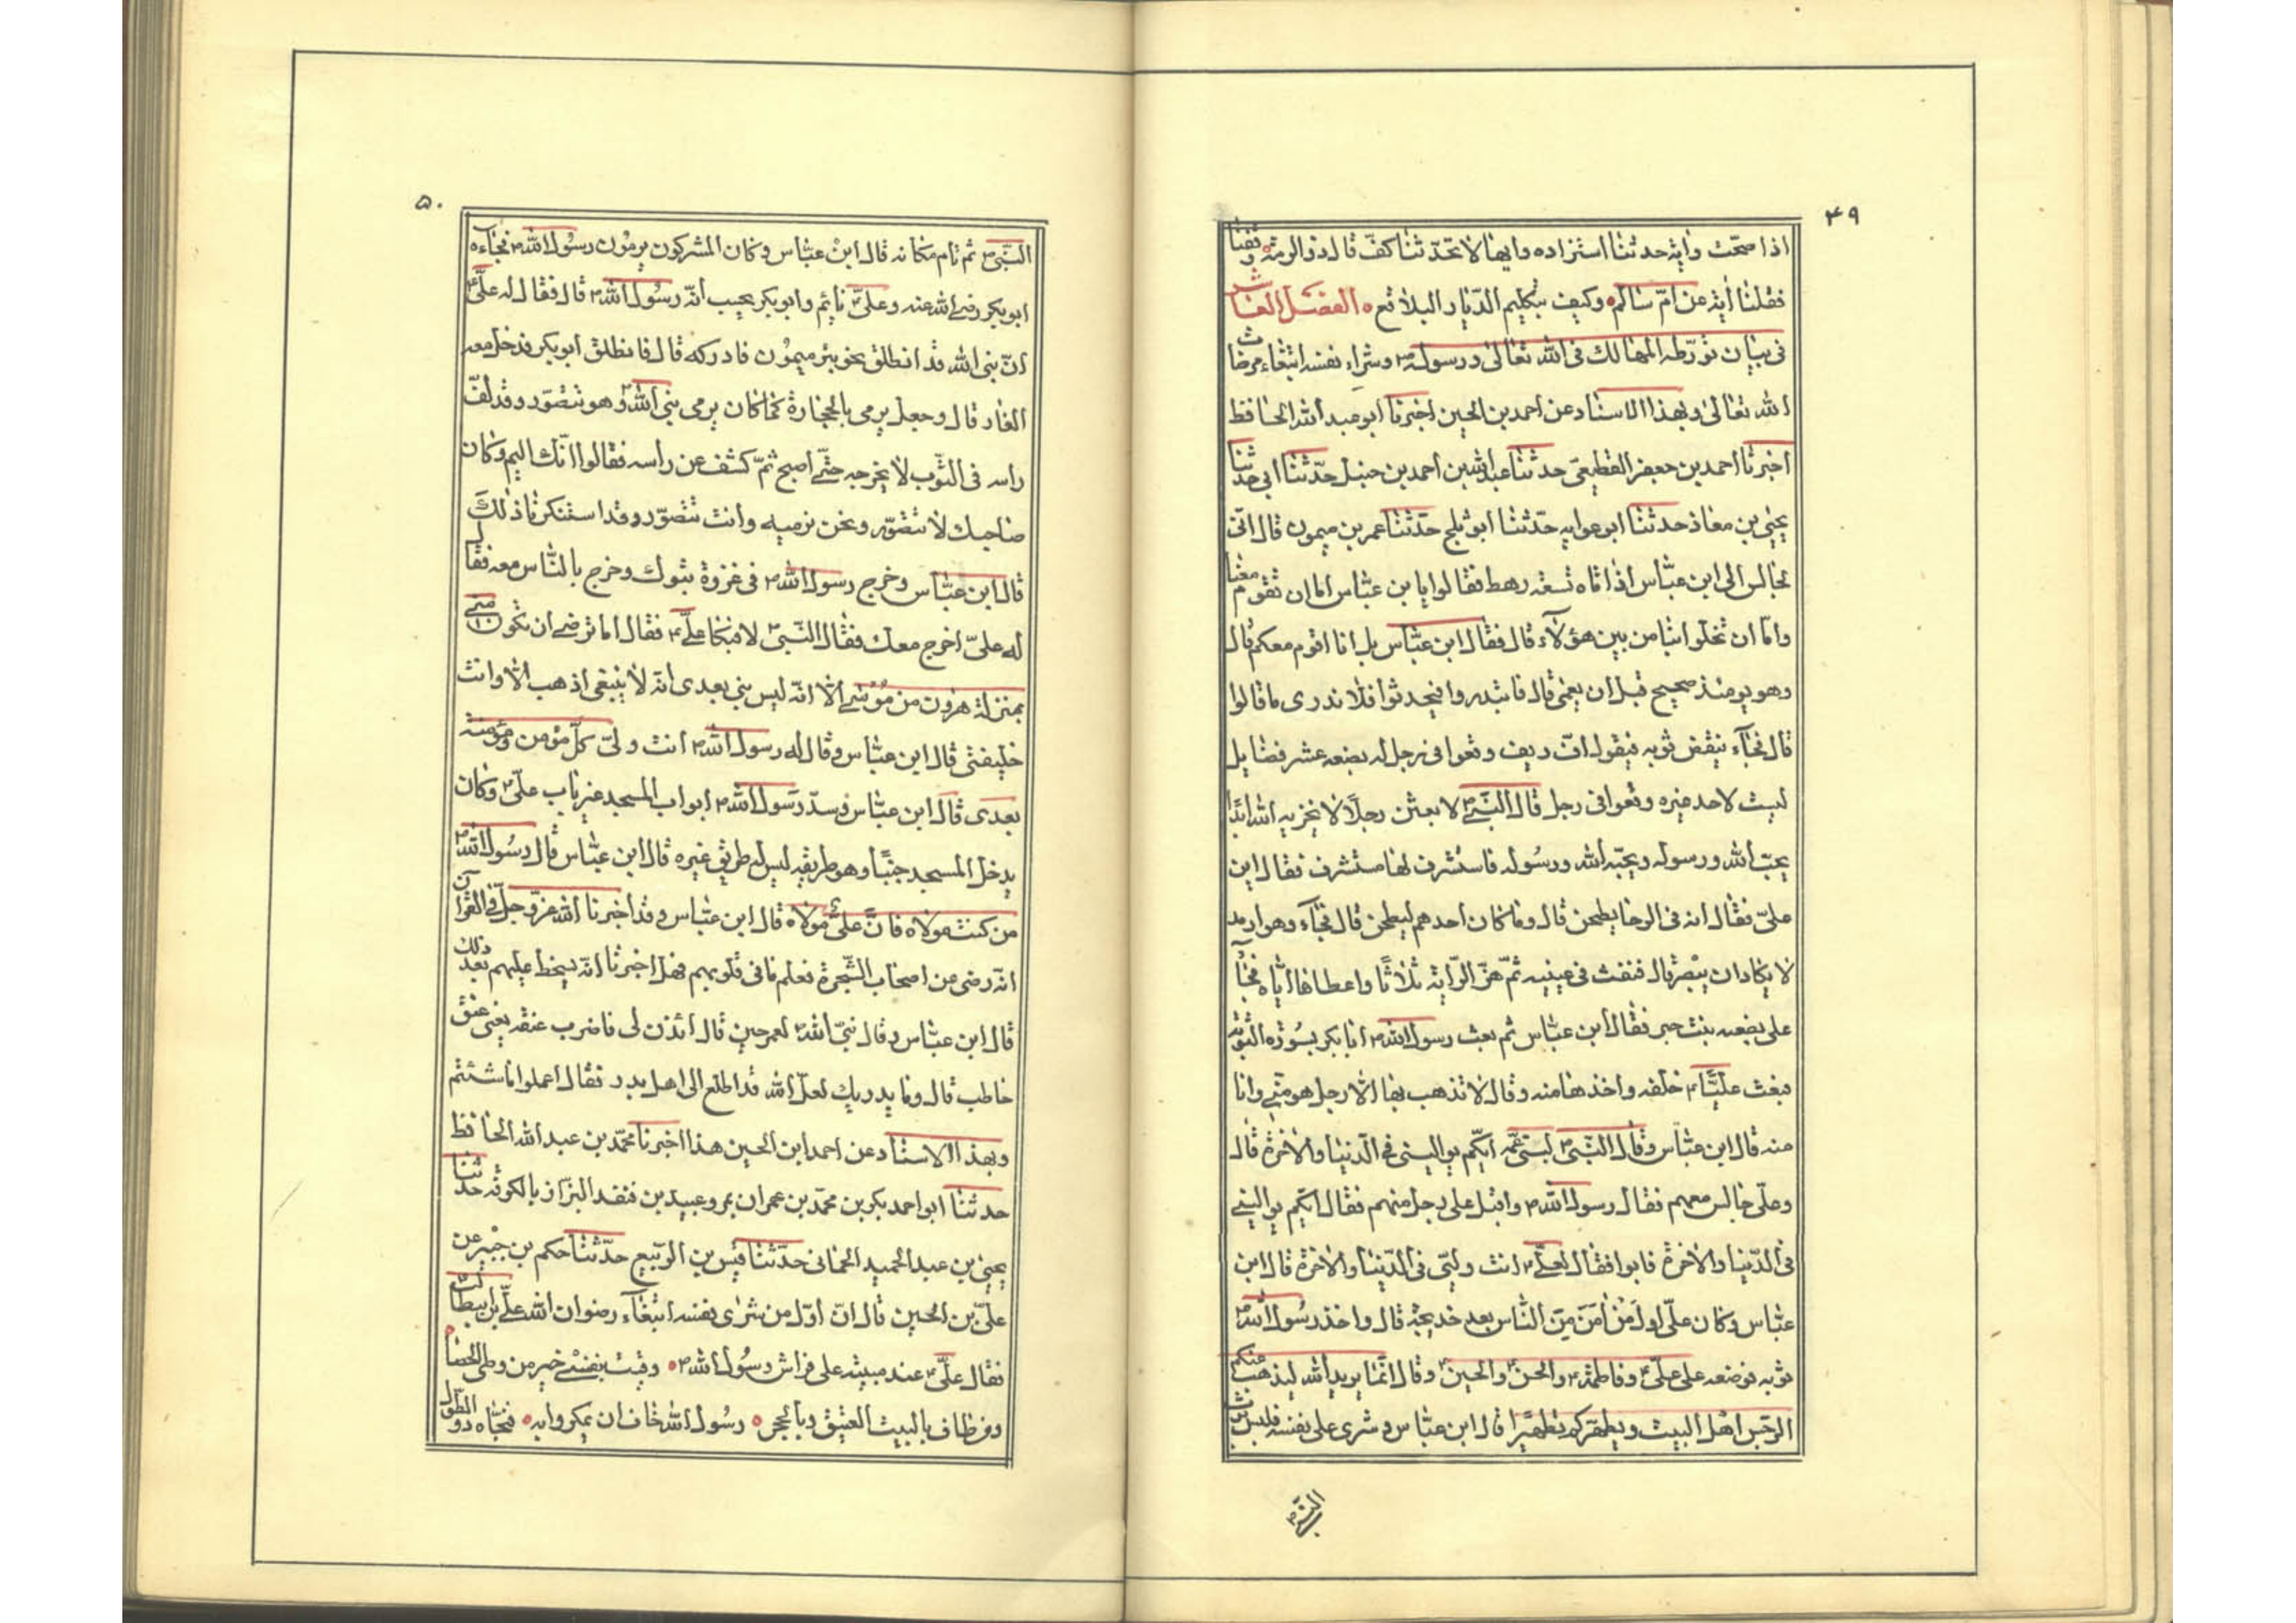 ۴۹
اذا صحّت وايه حدثنا استزاده وايها لا تحدّثنا كفّ قال ذو الرمة وقفنا
فقلنا ايه عن امّ سالم وكيف بتكليم الديار البلاقع الفصل العاشر
فى بيان تورّطه المهالك فى الله تعالى ورسوله وشراء نفسه ابتغاء مرضات
الله تعالى وبهذا الاسناد عن احمد بن الحين اخبرنا ابو عبد الله الحافظ
اخبرنا احمد بن جعفر القطيعى حدثنا عبد الله بن احمد بن حنبل حدّثنا ابى حدثنا
يحيى بن معاذ حدثنا ابو عوانه حدّثنا ابو بلج حدّثنا عمر بن ميمون قال انّى
لجالس الى ابن عبّاس اذ اتاه تسعه رهط فقالوا يا بن عبّاس اما ان تقوم معنا
وامّا ان تخلوا بنا من بين هؤلآء قال فقال ابن عبّاس بل انا اقوم معكم قال
وهو يومئذ صحيح قبل ان يعمى قال فابتدروا فتحدثوا فلا ندرى ما قالوا
قال فجآء ينفض ثوبه فيقول افّ وتف وقعوا فى رجل له بضعه عشر فضايل
ليست لاحد غيره وقعوا فى رجل قال النّبىّ لا بعثن رجلًا لا يخزيه الله ابدًا
يحبّ الله ورسوله ويحبّه الله ورسوله فاستشرف لها مستشرف فقال اين
علىّ فقال انه فى الرحا يطحن قال وما كان احدهم ليطحن قال فجآء وهو ارمد
لا يكاد ان يبصر قال فنفث فى عينيه ثمّ هزّ الرّايه ثلاثًا واعطاها ايّاه فجآء
على بضعه بنت حبى فقال ابن عبّاس ثم بعث رسول الله ابا بكر بسورة التوبه
فبعث عليّا خلفه واخذها منه وقال لا تذهب بها الا رجل هو منّى وانا
منه قال ابن عبّاس وقال النّبىّ لبنى عمّه ايّكم يوالينى فى الدّنيا والاخرة قال
وعلى جالس معهم فقال رسول الله واقبل على رجل منهم فقال ايّكم يوالينى
فى الدّنيا والاخرة فابوا فقال لعلىّ انت وليّى فى الدّنيا والاخرة قال ابن
عبّاس وكان علىّ اول من امن من النّاس بعد خديجة قال واخذ رسول الله
ثوبه فوضعه على علىّ وفاطمة والحسن والحين وقال انّما يريد الله ليذهب عنكم
الرجس اهل البيت ويطهركم تطهيرًا قال ابن عبّاس وشرى على نفسه فلبس ثوب
النّبىّ
۵۰
النّبىّ ثم نام مكانه قال ابن عبّاس وكان المشركون يرمون رسول الله فجآءه
ابو بكر رضى الله عنه وعلىّ نايم وابو بكر يحسب انّه رسول الله قال فقال له علىّ
انّ نبى الله قد انطلق نحو بئر ميمون فادركه قال فانطلق ابو بكر فدخل معه
الغار قال وجعل يرمى بالحجارة كما كان يرمى نبى الله وهو يتضوّر وقد لفّ
راسه فى الثّوب لا يخرجه حتّى اصبح ثمّ كشف عن راسه فقالوا انّك اليم وكان
صاحبك لا يتضوّر ونحن نرميه وانت تتضوّر وقد استنكرنا ذلك
قال ابن عبّاس وخرج رسول الله فى غزوة تبوك وخرج بالنّاس معه فقال
له علىّ اخرج معك فقال النّبىّ لا فبكا علىّ فقال اما ترضى ان تكون منّى
بمنزلة هرون من موسى الّا انّه ليس نبى بعدى انّه لا ينبغى اذهب الّا وانت
خليفتى قال ابن عبّاس وقال له رسول الله انت ولىّ كلّ مؤمن ومؤمنة
بعدى قال ابن عبّاس وسدّ رسول الله ابواب المسجد غير باب علىّ وكان
يدخل المسجد جنبًا وهو طريقه ليس له طريق غيره قال ابن عبّاس قال رسول الله
من كنت مولاه فانّ علىّ مولاه قال ابن عبّاس وقد اخبرنا الله عزّ وجلّ فى القرآن
انّه رضى عن اصحاب الشّجرة فعلم ما فى قلوبهم فهل اخبرنا انّه سخط عليهم بعد ذلك
قال ابن عبّاس وقال نبىّ الله لعمر حين قال ائذن لى فاضرب عنقه يعنى عنق
حاطب قال وما يدريك لعلّ الله قد اطلع الى اهل بدر فقال اعملوا ما شئتم
وبهذا الاسناد عن احمد ابن الحين هذا اخبرنا محمّد بن عبد الله الحافظ
حدثنا ابو احمد بكر بن محمّد بن عمران بمرو عبيد بن قنفد البزاز بالكوفة حدثنا
يحيى بن عبد الحميد الحمانى حدّثنا قيس بن الربيع حدّثنا حكم بن جبير عن
علىّ بن الحين قال انّ اوّل من شرى نفسه ابتغآء رضوان الله علىّ بن ابيطالب
فقال علىّ عند مبيته على فراش رسول الله وقيت بنفسى خير من وطى الحصا
ومن طاف بالبيت العتيق وبالحجر رسول الله خاف ان يمكروا به فنجّاه ذو الطّول